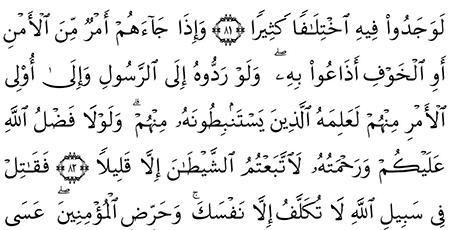 لَوَجَدُوا۟ فِيهِ ٱخْتِلَـٰفًا كَثِيرًا ﴿٨١﴾ وَإِذَا جَآءَهُمْ أَمْرٌ مِّنَ ٱلْأَمْنِ
أَوِ ٱلْخَوْفِ أَذَاعُوا۟ بِهِۦ ۖ وَلَوْ رَدُّوهُ إِلَى ٱلرَّسُولِ وَإِلَىٰٓ أُو۟لِى
ٱلْأَمْرِ مِنْهُمْ لَعَلِمَهُ ٱلَّذِينَ يَسْتَنۢبِطُونَهُۥ مِنْهُمْ ۗ وَلَوْلَا فَضْلُ ٱللَّهِ
عَلَيْكُمْ وَرَحْمَتُهُۥ لَٱتَّبَعْتُمُ ٱلشَّيْطَـٰنَ إِلَّا قَلِيلًا ﴿٨٢﴾ فَقَـٰتِلْ
فِى سَبِيلِ ٱللَّهِ لَا تُكَلَّفُ إِلَّا نَفْسَكَ ۚ وَحَرِّضِ ٱلْمُؤْمِنِينَ ۖ عَسَى